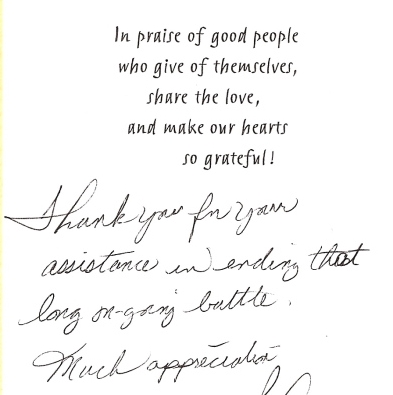 In praise of good people
who give of themselves,
share the love,
and make our hearts
so grateful!
Thank you for your
assistance in ending that
long on-going battle.
Much appreciation